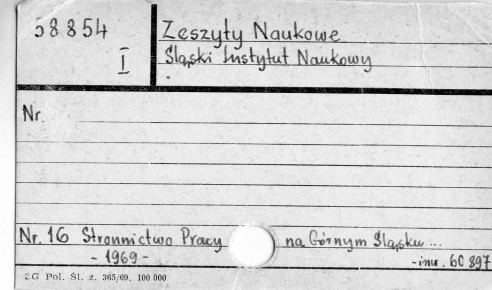 58854
I
Zeszyty Naukowe
Śląski Instytut Naukowy
Nr.
Nr. 16 Stronnictwo Pracy na Górnym Śląsku...
- 1969 -
- inw. 60 897
ZG Pol. Śl. z. 365/69. 100 000